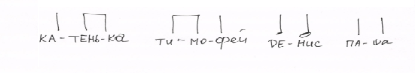 КА-ТЕНЬ-КА ТИ-МО-ФЕЙ ДЕ-НИС ПА-ША